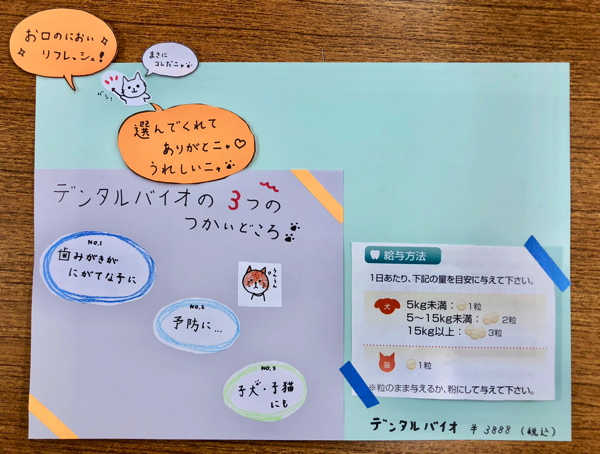 お口のにおい
リフレッシュ!
まさに
コレだニャ
選んでくれて
ありがとニャ♡
うれしいニャ
デンタルバイオの 3つの
つかいどころ
NO.1
歯みがきが
にがてな子に
NO.2
予防に…
NO.3
子犬・子猫
にも
給与方法
1日あたり、下記の量を目安に与えて下さい。
犬
5kg未満:1粒
5~15kg未満:2粒
15kg以上:3粒
猫
1粒
※粒のまま与えるか、粉にして与えて下さい。
デンタルバイオ ¥3888(税込)